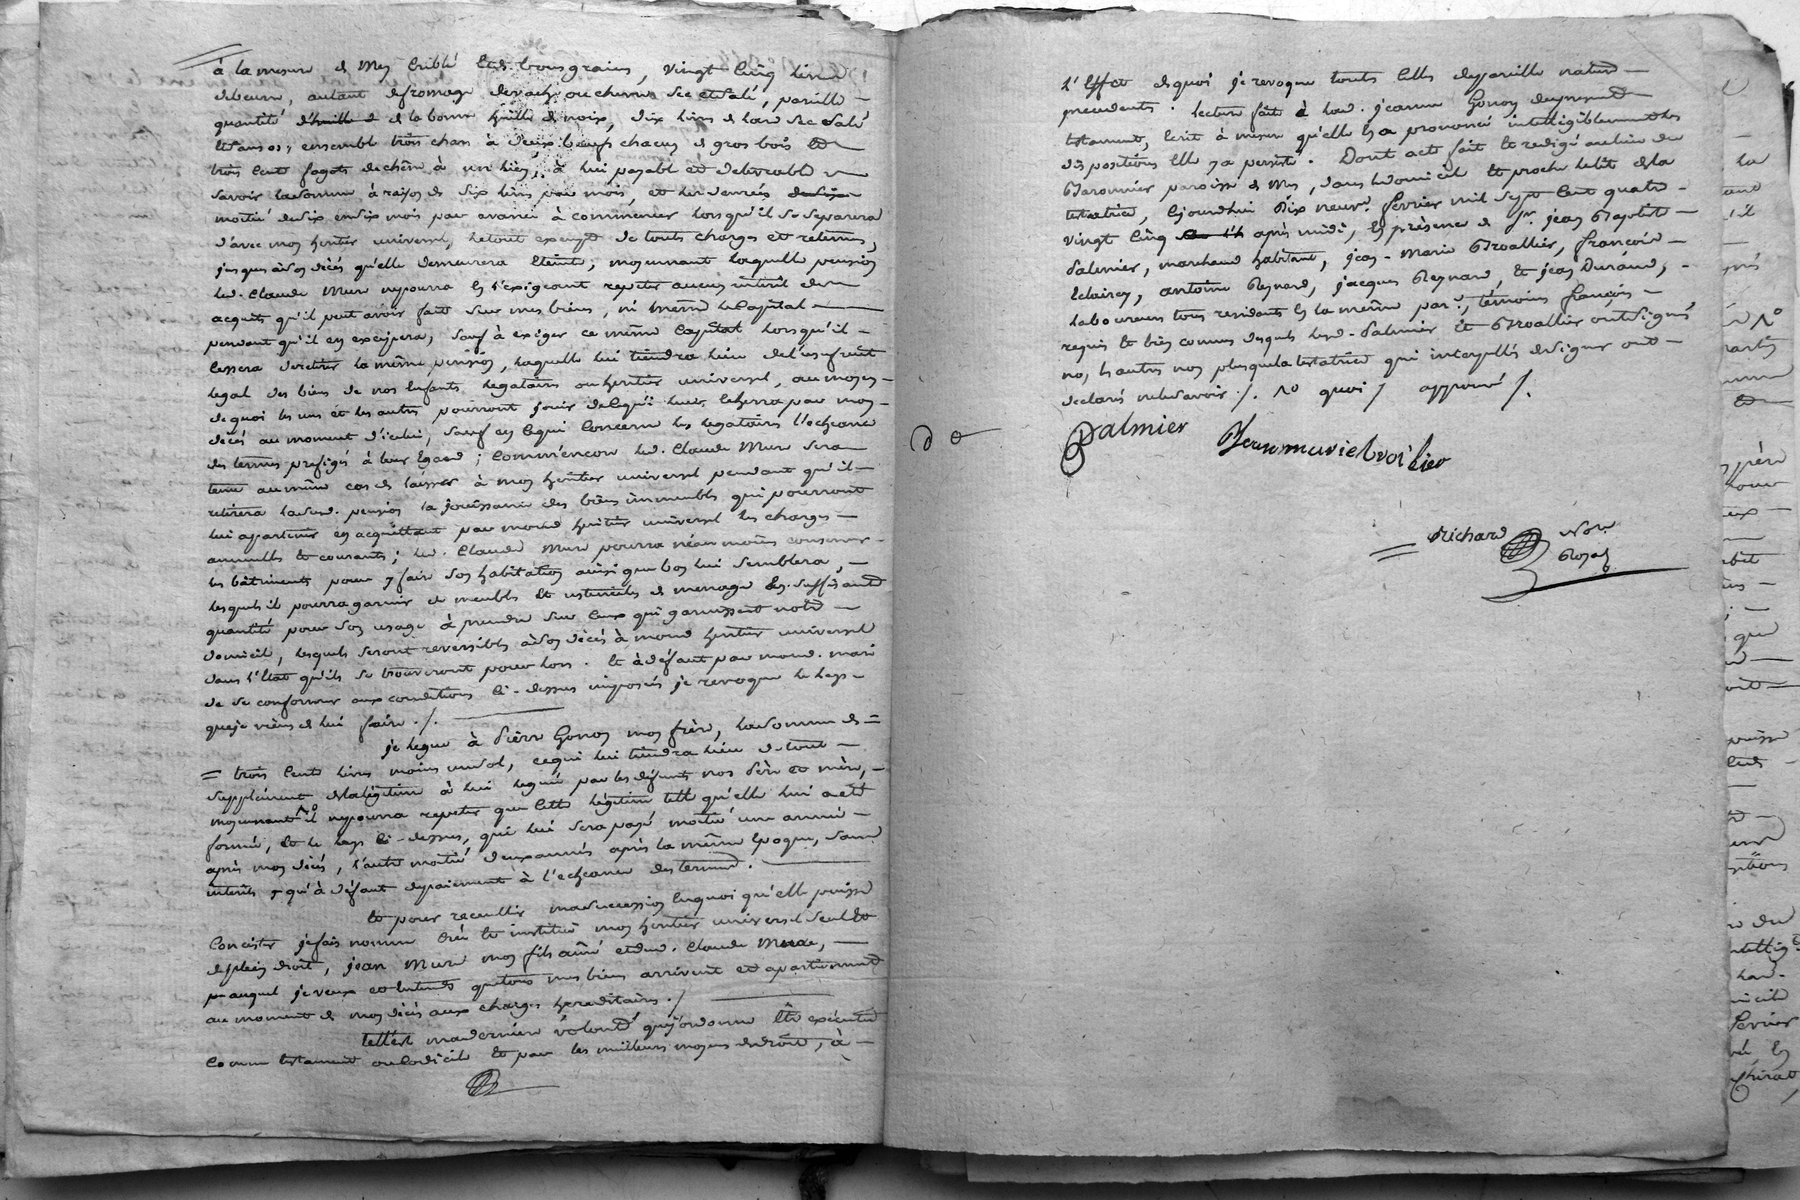 à la mesure de Mey criblé et de bons grains, vingt cinq livres
de beurre, autant de fromage de vache ou chevre sec et salé, pareille
quantité d'huille de de la bonne huille de noix, dix livres de lard sec salé
et sans os; ensemble trois chars à deux bœufs chacun de gros bois et
trois cent fagots de chêne à un lien, à lui payable et delivrable
savoir la somme à raison de six livres par mois, et les denrées
moitié de six en six mois par avance à commencer lors qu'il se separera
d'avec mon heritier universel, le tout exempt de touttes charges et retenues,
jusques à son décès qu'elle demeurera eteinte; moyennant laquelle pension
led. Claude Mure ne pourra en l'exigeant repeter aucun interet des
acquits qu'il peut avoir fait sur mes biens, ni même le capital
pendant qu'il en excipera, sauf à exiger ce même capital lors qu'il
cessera de retirer la même pension, laquelle lui tiendra lieu de l'usufruit
legal des biens de nos enfants legataires ou heritier universel, au moyen
de quoi les uns et les autres pourront jouir de ce qui leur écherra par mon
décès au moment d'icelui, sauf en ce qui concerne les legataires l'echeance
des termes prefigés à leur egard; comm'encore led. Claude Mure sera
tenu au même cas de laisser à mon heritier universel pendant qu'il
retirera lad. pension la jouissance des biens immeubles qui pourront
lui apartenir en acquittant par mond. heritier universel les charges
annuelles et courantes; led. Claude Mure pourra néanmoins conserver
les bâtiments pour y faire son habitation ainsi que bon lui semblera,
lesquels il pourra garnir de meubles et ustenciles de menage en suffisante
quantité pour son usage à prendre sur ceux qui garnissent notre
domicile, lesquels seront reversibles à son décès à mond. heritier universel
dans l'état qu'ils se trouveront pour lors. Et à défaut par mond. mari
de se conformer aux conditions ci-dessus imposées je revoque le legs
que je viens de lui faire ./.
je legue à Pierre Gonon mon frère, la somme de
trois cents livres moins un sol, ce qui lui tiendra lieu de tout
supplément de la légitime à lui leguée par les défunts nos père et mère,
moyennant ce il ne pourra repeter que cette légitime telle qu'elle lui a été
formée, et le legs ci-dessus, qui lui sera payé moitié une année
après mon décès, l'autre moitié deux années après la même epoque, sans
interets qu'à défaut de paiement à l'echeance des termes.
Et pour recueillir ma succession en quoi qu'elle puisse
concister je fais nomme crée et institue mon heritier universel seul et
de plein droit, jean Mure mon fils ainé et dud. Claude Mure,
auquel je veux et entends que tous mes biens arrivent et apartiennent
au moment de mon décès aux charges hereditaires ./
telle est ma dernière volonté que j'ordonne être executée
comme testament ou codicile et par les meilleurs moyens de droit, à
l'effet de quoi je revoque touts ceux de pareille nature
precedents. lecture faite à lad. jeanne Gonon du present
testament, ecrit à mesure qu'elle en a prononcé intelligiblement les
dispositions elle y a persisté. Dont acte fait et redigé au lieu de
paroisse de Mey, dans le domicile et proche le lit de la
testatrice, cejourdhui dix neuf. fevrier mil sept cent quatre
vingt cinq après midi, en présence de Sr. jean Baptiste
Palmier, marchand habitant, jean-Marie Broallier, françois
antoine Reynard, jacques Reynard, et jean Durand,
laboureurs tous residents en la même par.e, témoins françois
requis et bien connus desquels lesd. Palmier et Broallier ont signés
no, les autres non plus que la testatrice qui interpellés de signer ont
declarés ne le savoir ./. No quoi / approuvé /.
Palmier
Jean marie broilier
Richard Nore.
Royal